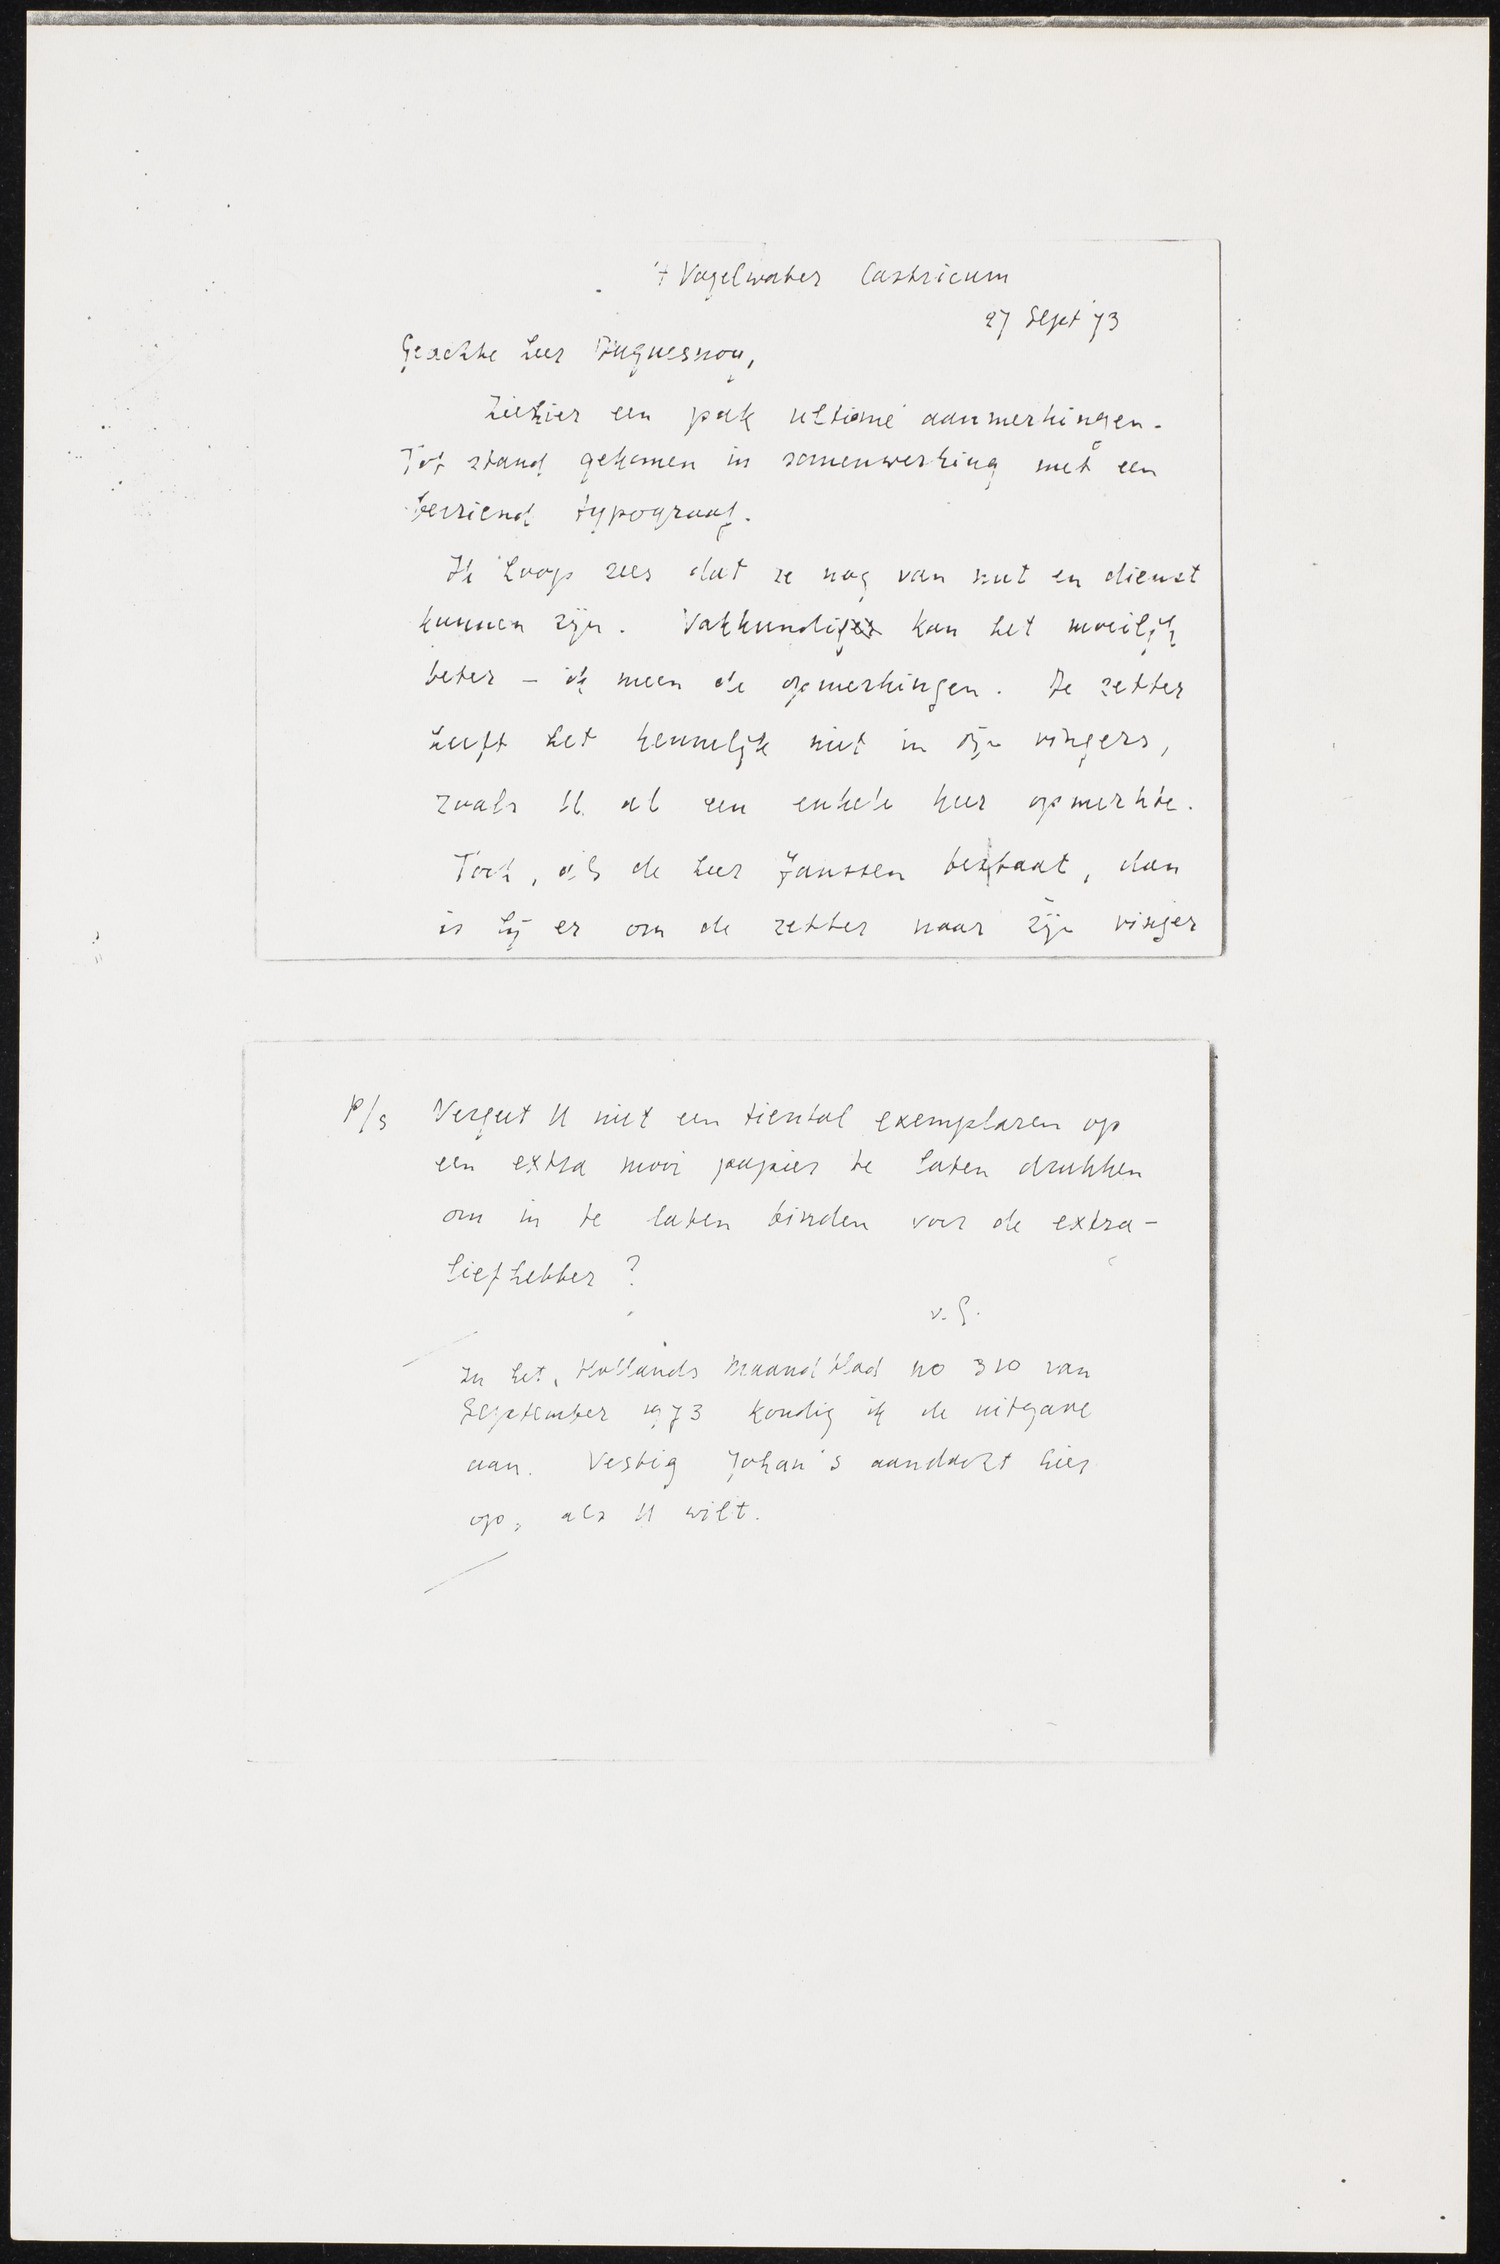 't Vogelwater Castricum
27 Sept '73
Geachte heer Duquesnoy,
Ziehier een pak ultieme aanmerkingen.
Tot stand gekomen in samenwerking met een
bevriend typograaf.
Ik hoop zeer dat ze nog van nut en dienst
kunnen zijn. Vakkundiger kan het moeilijk
beter – ik meen de opmerkingen. De zetter
heeft het kennelijk niet in zijn vingers,
zoals U al een enkele keer opmerkte.
Toch, als de heer Janssen bestaat, dan
is hij er om de zetter naar zijn vinger
P/s Vergeet U niet een tiental exemplaren op
een extra mooi papier te laten drukken
om in te laten binden voor de extra-
liefhebber?
v. G.
In het, Hollands Maandblad no 310 van
September 1973 kondig ik de uitgave
aan. Vestig Johan's aandacht hier
op, als U wilt.